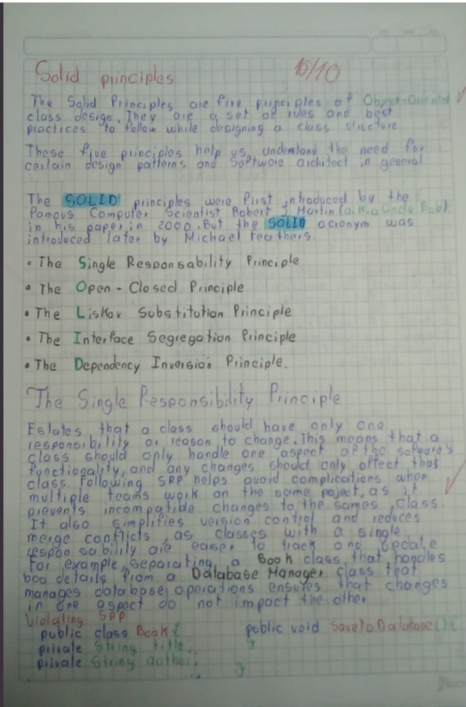 Solid principles 15/10
The Solid Principles are five principles of Object-Oriented
class design. They are a set of rules and best
practices to follow while designing a class structure
These five principles help us understand the need for
certain design patterns and software architect in general
The SOLID principles were first introduced by the
Famous Computer Scientist Robert J Martin (a.k.a Uncle Bob)
in his paper in 2000. But the SOLID acronym was
introduced later by Michael Feathers.
• The Single Responsability Principle
• The Open-Closed Principle
• The Liskov Substitution Principle
• The Interface Segregation Principle
• The Dependency Inversion Principle.
The Single Responsibility Principle
Estates that a class should have only one
responsibility or reason to change. This means that a
class should only handle one aspect of the software's
functiogality, and any changes should only affect that
class. Following SRP helps avoid complications when
multiple teams work on the same poject, as it
prevents incompatible changes to the sames class.
It also simplifies version control and reduces
merge conflicts, as classes with a single
respon sability are easier to track and update
For example, separating a Book class that handles
boo details from a Database Manager class that
manages database operations ensures that changes
in one aspect do not impact the other
Violating SRP
public class Book { public void SavetoDatabase() {
private String title.. }
private String author. }